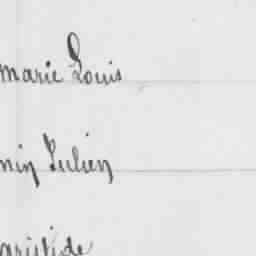 marie Louis
min Julien
aristide